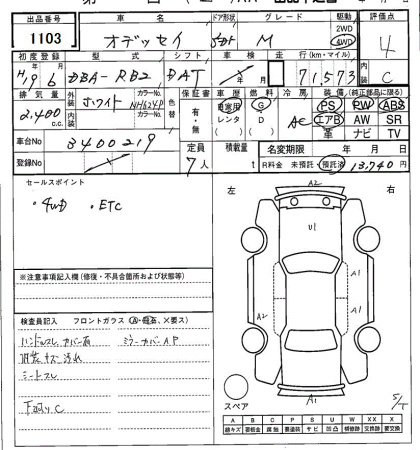 出品番号 車名 ドア形状 グレード 駆動 評価点
1103 オデッセイ 5ドア M 2WD 4WD 4
初度登録 型式 シフト 車検 走行(km・マイル) 内装
H19 6 DBA-RB2 DAT 年 月 71,573 C
排気量 外装 カラーNo. 色替 保証書 車歴 燃料 冷房 装備(純正部品に限る)
2,400c.c. ホワイト NH624P 有・無 自家用 レンタ G D AC PS PW ABS
内装 カラーNo. エアB AW SR
車 ナビ TV
車台No. 3400219
定員 積載量 名変期限 年 月 日
登録No. 7人 t R料金 未預託・預託済 13,740円
セールスポイント
・4WD ・ETC
左 右
A2
U1
A1
A2
A1
A1
※注意事項記入欄(修復・不具合箇所および状態等)
検査員記入 フロントガラス(A・飛石、×要ス)
ハンドルスレ カバー有 ミラーカバーAP
内装キズ汚れ
シートスレ
下回りC
スペア
S/T
A B C P S U W X XX
線キズ 腐食 要塗装 サビ 凹凸 補修跡 要交換 交換